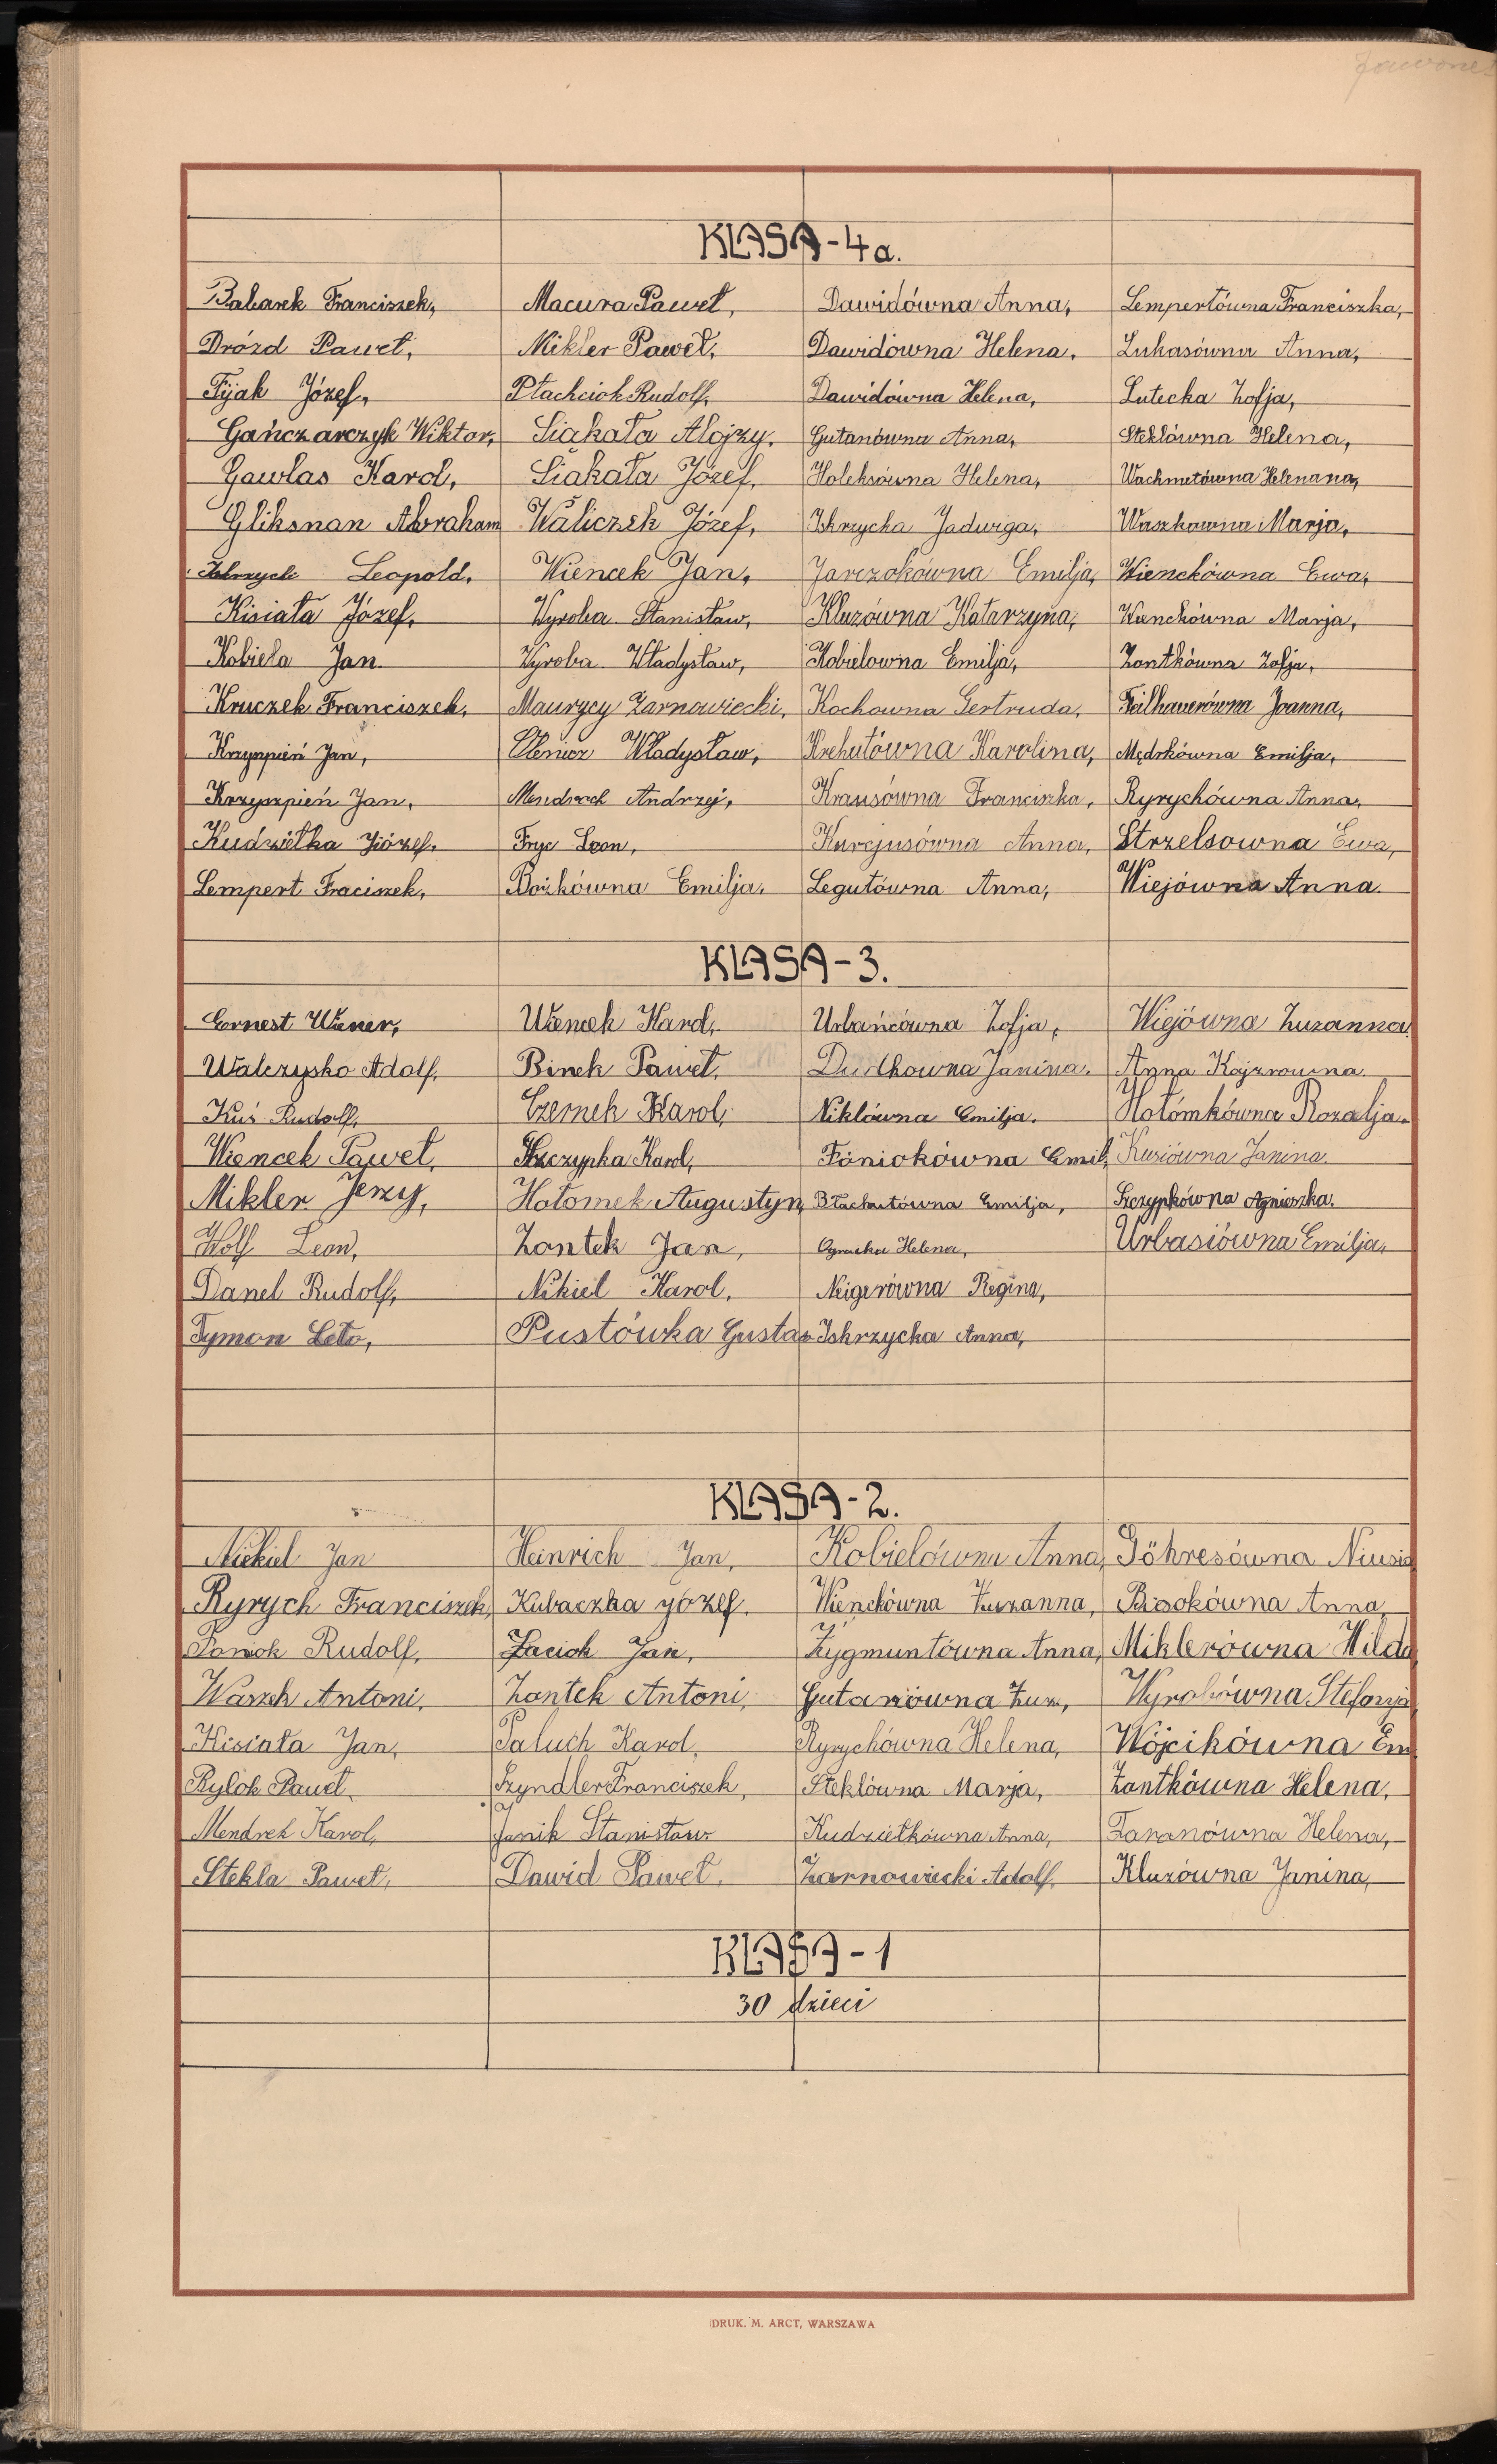 KLASA - 4a.
Babarek Franciszek, Macura Paweł, Dawidówna Anna, Lempertówna Franciszka,
Drózd Paweł, Mikler Paweł, Dawidówna Helena, Lukasówna Anna,
Fijak Józef, Płachciok Rudolf, Dawidówna Helena, Lutecka Zofja,
Gańczarczyk Wiktor, Siąkała Alojzy, Gutanówna Anna, Steklówna Helena,
Gawlas Karol, Siąkała Józef, Holeksówna Helena, Wachmetówna Helenana,
Gliksnan Abraham Waliczek Józef, Iskrzycka Jadwiga, Waszkówna Marja,
Leopold, Wiencek Jan, Jarczokówna Emilja, Wienckówna Ewa,
Kisiała Józef, Wyroba Stanisław, Kluzówna Katarzyna, Wienckówna Marja,
Kobiela Jan. Wyroba Władysław, Kobielowna Emilja, Zontkówna Zofja,
Kruczek Franciszek, Maurycy Żarnowiecki, Kochowna Gertruda, Failhauerówna Joanna,
Jan, Władysław, Krehutówna Karolina, Mędrkówna Emilja,
Krzyszpień Jan, Mendroch Andrzej, Krausówna Franciszka, Ryrychówna Anna,
Kudziełka Józef, Fryc Leon, Kurejusówna Anna, Strzelsowna Ewa,
Lempert Fraciszek, Bożkówna Emilja, Legutówna Anna, Wiejówna Anna.
KLASA - 3.
Ernest Wiener, Wiencek Karol, Urbańcówna Zofja, Wiejówna Zuzanna
Walczysko Adolf, Binek Paweł, Dudkowna Janina, Anna Kojzrowna.
Kuś Rudolf, Czernek Karol, Niklówna Emilja. Hołómkówna Rozalja.
Wiencek Paweł, Szczypka Karol, Foniokówna Emil, Kusiówna Janina.
Mikler Jerzy, Hołomek Augustyn, Błachutówna Emilja, Szczypkówna Agnieszka.
Wolf Leon, Zontek Jan, Helena, Urbasiówna Emilja,
Danel Rudolf, Nikiel Karol, Neigerówna Regina,
Tymon Leto, Pustówka Gustaw Iskrzycka Anna,
KLASA - 2.
Niekiel Jan Heinrich Jan, Kobielówna Anna, Göhresówna Niusia
Ryrych Franciszek, Kubaczka Józef. Wienckówna Zuzanna, Bieokówna Anna
Foniok Rudolf, Zaciok Jan, Zygmuntówna Anna, Miklerówna Hilda
Waszek Antoni, Zontek Antoni, Gutanówna Zuz, Wyrobówna Stefanja
Kisiała Jan, Paluch Karol, Ryrychówna Helena, Wójcikówna Em
Bylok Paweł, Szyndler Franciszek, Steklówna Marja, Zontkówna Helena,
Mendrek Karol, Janik Stanisław Kudziełkówna Anna, Faranówna Helena,
Stekla Paweł, Dawid Paweł, Żarnowiecki Adolf, Kluzówna Janina,
KLASA - 1
30 dzieci
DRUK. M. ARCT, WARSZAWA